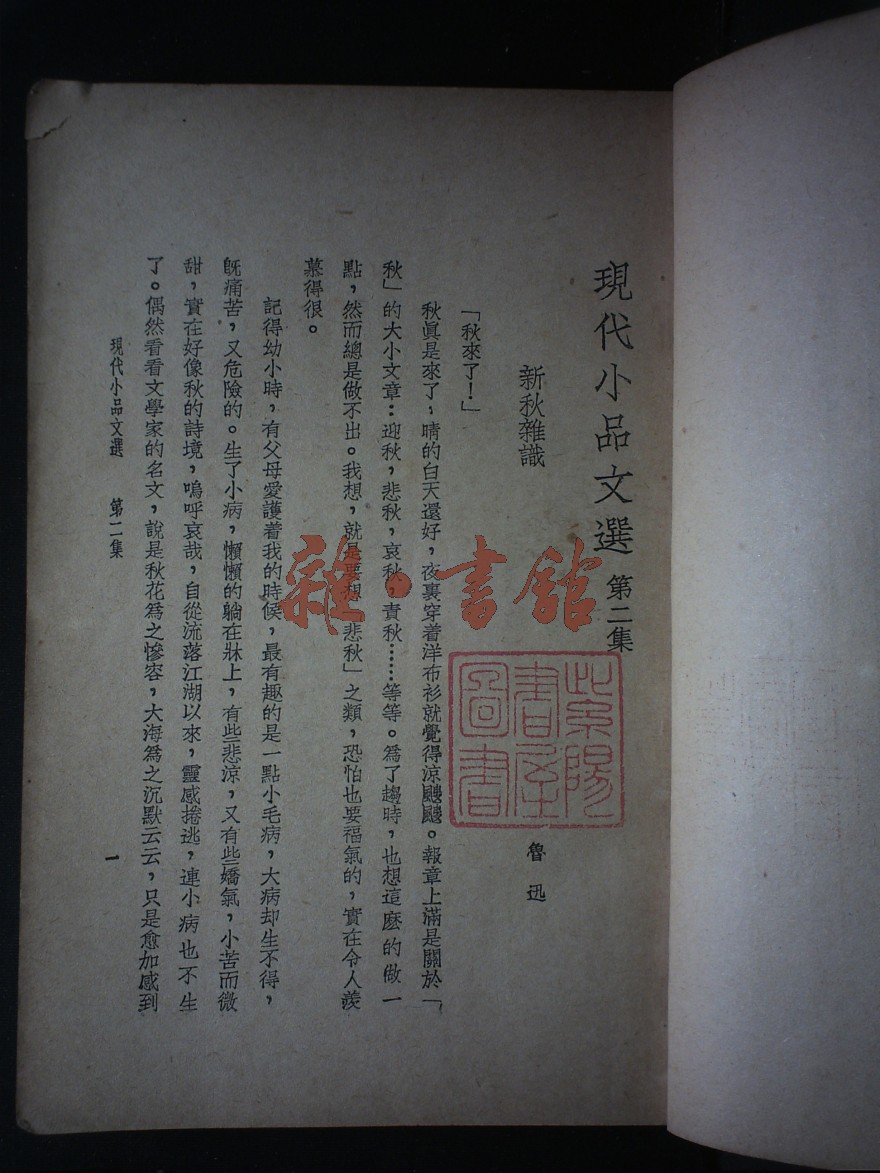 現代小品文選 第二集
新秋雜識
魯迅
「秋來了！」
秋眞是來了，晴的白天還好，夜裏穿着洋布衫就覺得涼颼颼。報章上滿是關於「
秋」的大小文章：迎秋，悲秋，哀秋，責秋……等等。爲了趨時，也想這麽的做一
點，然而總是做不出。我想，就是要想「悲秋」之類，恐怕也要福氣的，實在令人羨
慕得很。
記得幼小時，有父母愛護着我的時候，最有趣的是一點小毛病，大病却生不得，
旣痛苦，又危險的。生了小病，懶懶的躺在牀上，有些悲涼，又有些嬌氣，小苦而微
甜，實在好像秋的詩境，嗚呼哀哉，自從流落江湖以來，靈感捲逃，連小病也不生
了。偶然看看文學家的名文，說是秋花爲之慘容，大海爲之沉默云云，只是愈加感到
現代小品文選 第二集
一
雜·書館